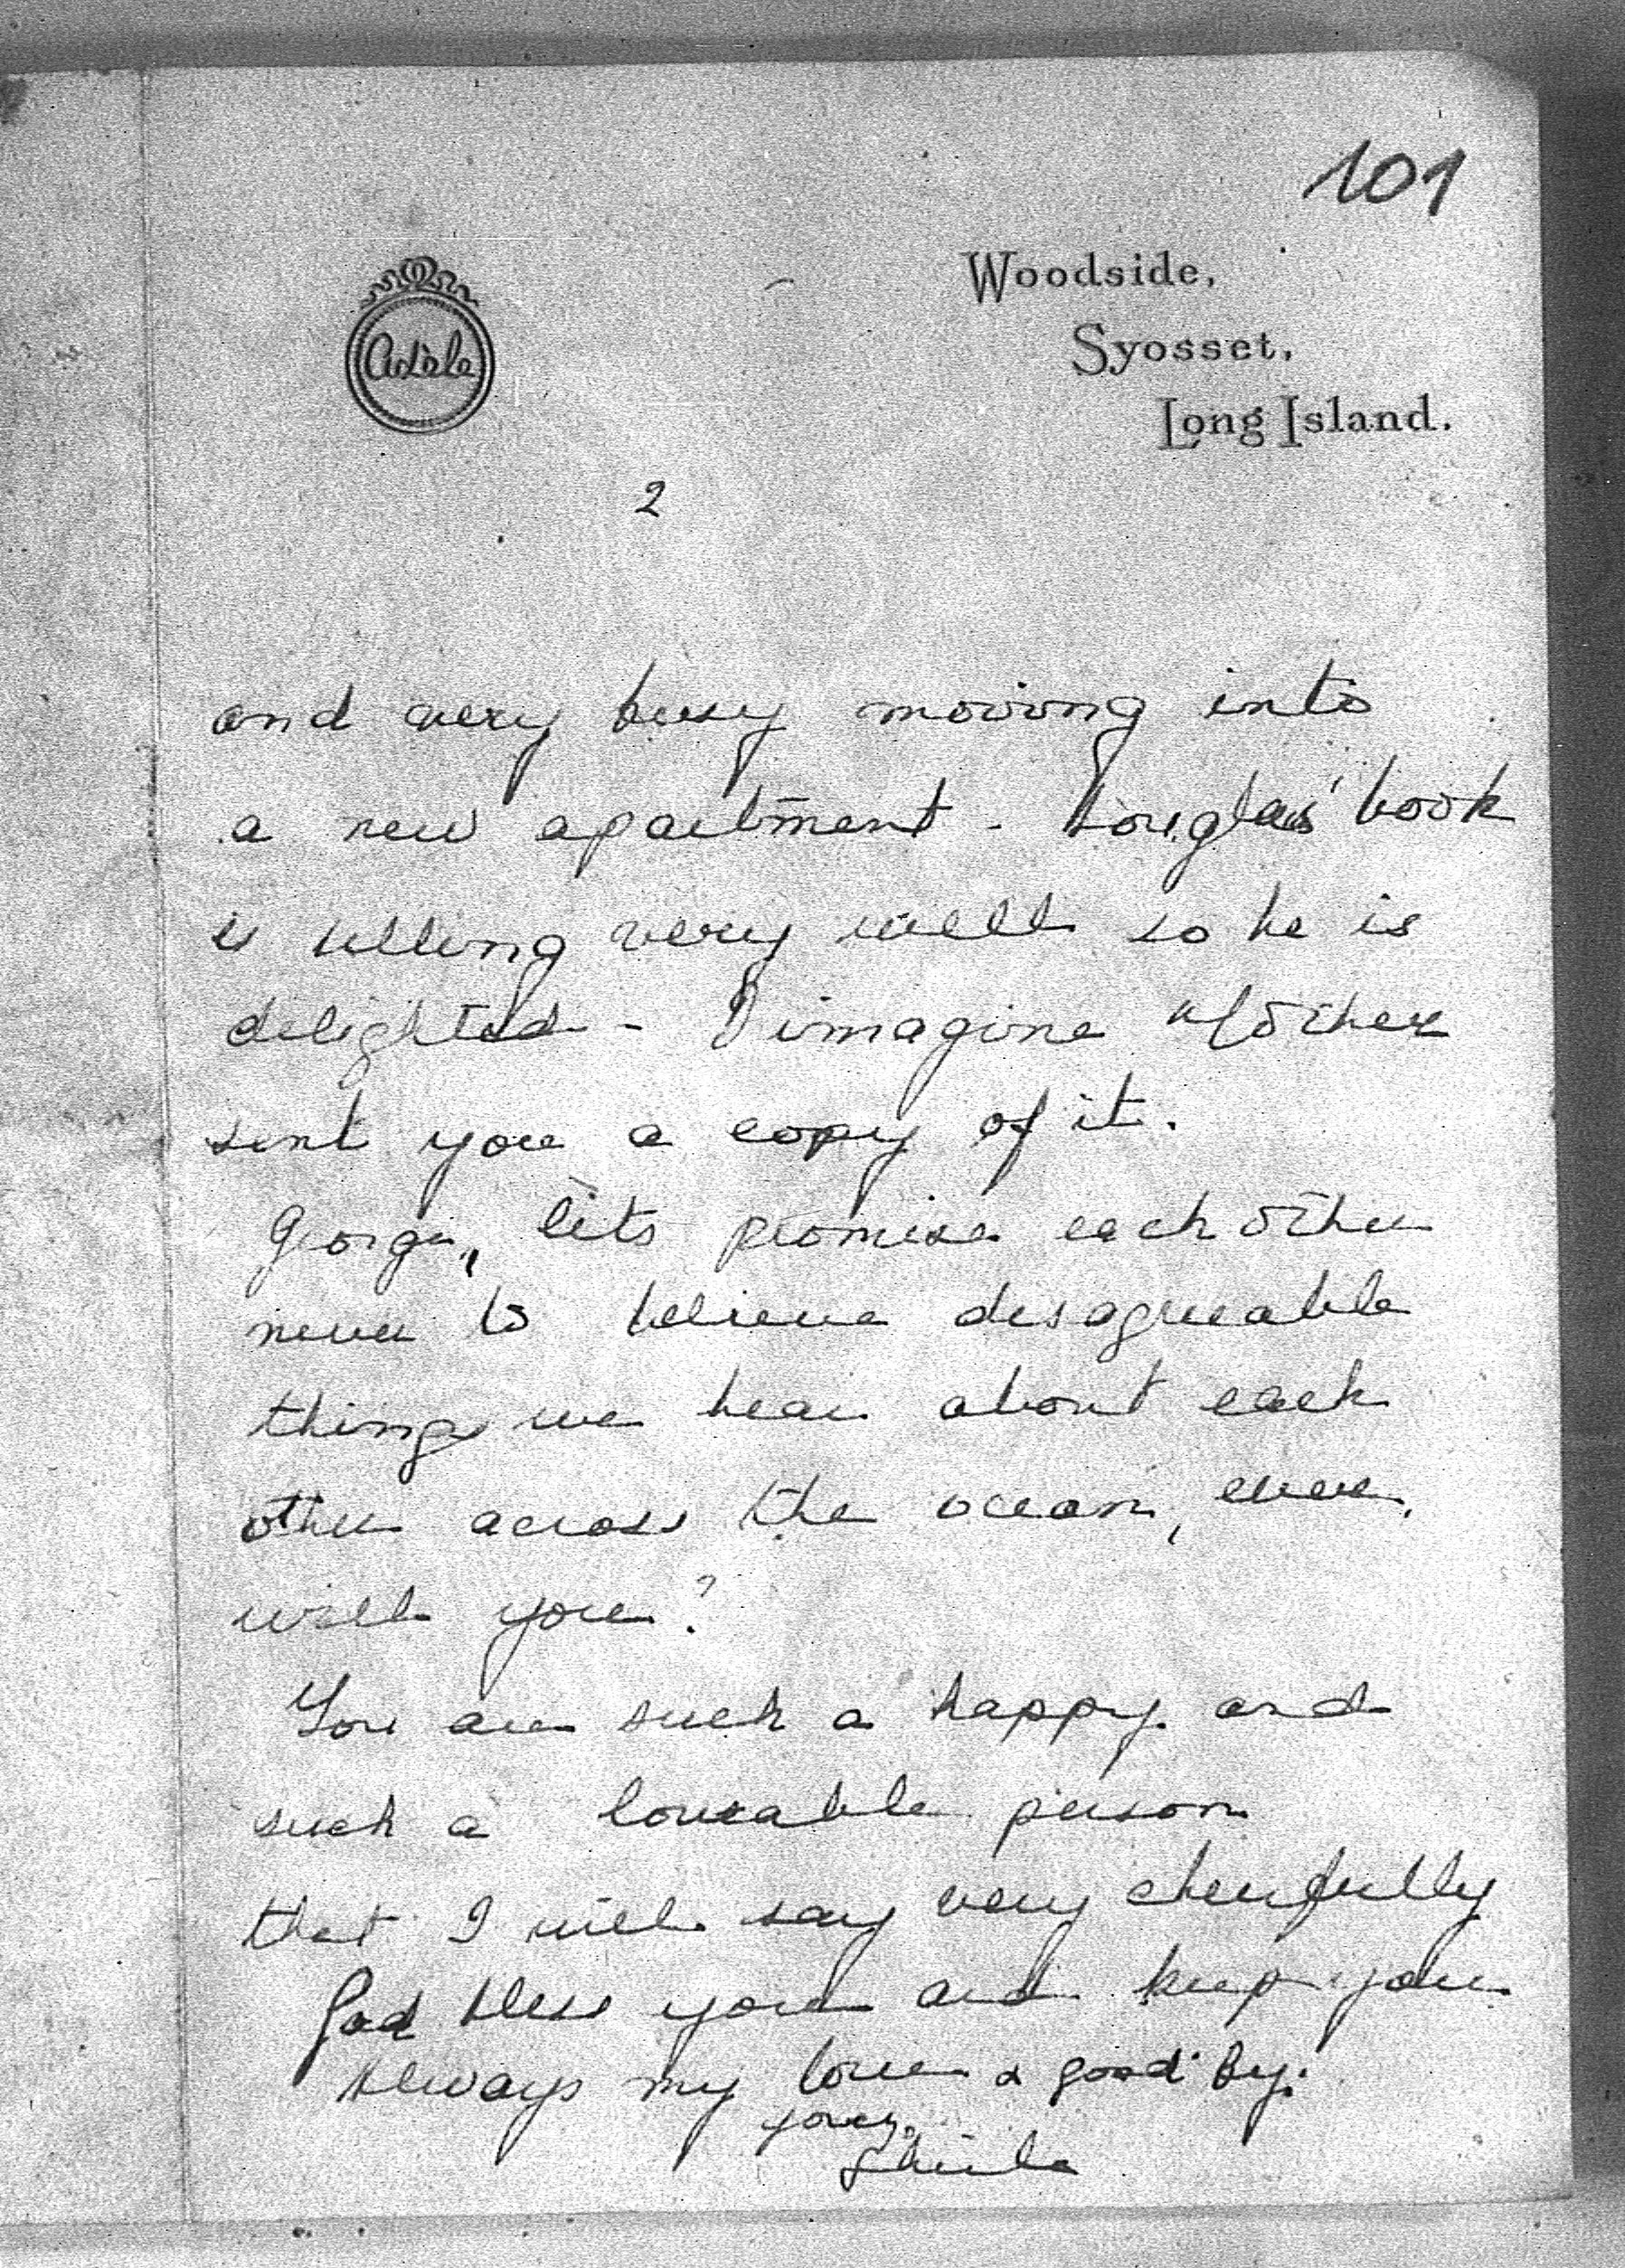 101
Adèle
Woodside,
Syosset,
Long Island.
2
and very busy moving into
a new apartment - Douglas' book
is selling very well so he is
delighted - I imagine Mother
sent you a copy of it.
George, lets promise each other
never to believe disagreeable
things we hear about each
other across the ocean, ever,
will you?
You are such a happy and
such a loveable person
that I will say very cheerfully
God bless you and keep you
Always my love & good by.
yours,
Sheila